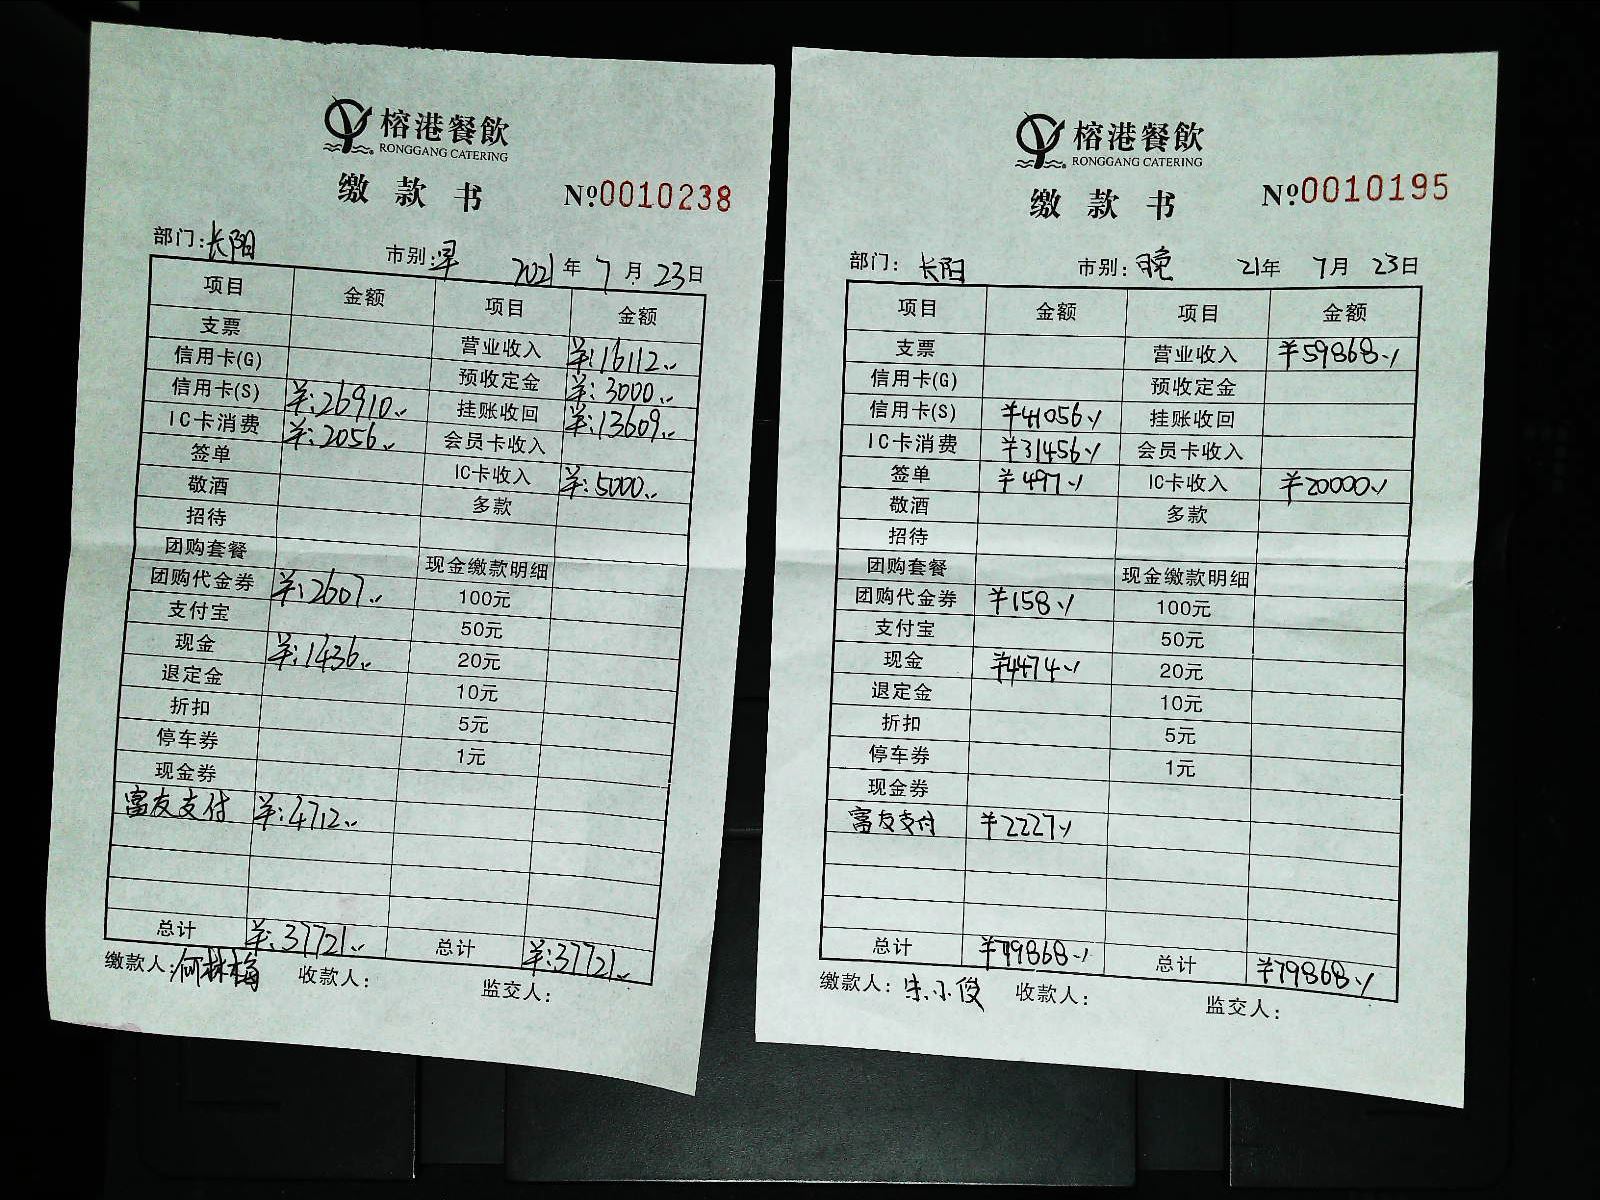 榕港餐飲
RONGGANG CATERING
缴款书 №0010238
部门:长阳 市别:早 2021年7月23日
项目 金额 项目 金额
支票 营业收入 ¥:16112..
信用卡(G) 预收定金 ¥:3000..
信用卡(S) ¥:26910.. 挂账收回 ¥:13609..
IC卡消费 ¥:2056.. 会员卡收入
签单 IC卡收入 ¥:5000..
敬酒 多款
招待
团购套餐 现金缴款明细
团购代金券 ¥:2607.. 100元
支付宝 50元
现金 ¥:1436.. 20元
退定金 10元
折扣 5元
停车券 1元
现金券
富友支付 ¥:4712..
总计 ¥:37721.. 总计 ¥:37721..
缴款人:何林梅 收款人: 监交人:
榕港餐飲
RONGGANG CATERING
缴款书 №0010195
部门:长阳 市别:晚 21年7月23日
项目 金额 项目 金额
支票 营业收入 ¥59868.-/
信用卡(G) 预收定金
信用卡(S) ¥41056-/ 挂账收回
IC卡消费 ¥31456-/ 会员卡收入
签单 ¥497-/ IC卡收入 ¥20000-/
敬酒 多款
招待
团购套餐 现金缴款明细
团购代金券 ¥158-/ 100元
支付宝 50元
现金 ¥4474-/ 20元
退定金 10元
折扣 5元
停车券 1元
现金券
富友支付 ¥2227-/
总计 ¥79868-/ 总计 ¥79868-/
缴款人:朱小俊 收款人: 监交人: